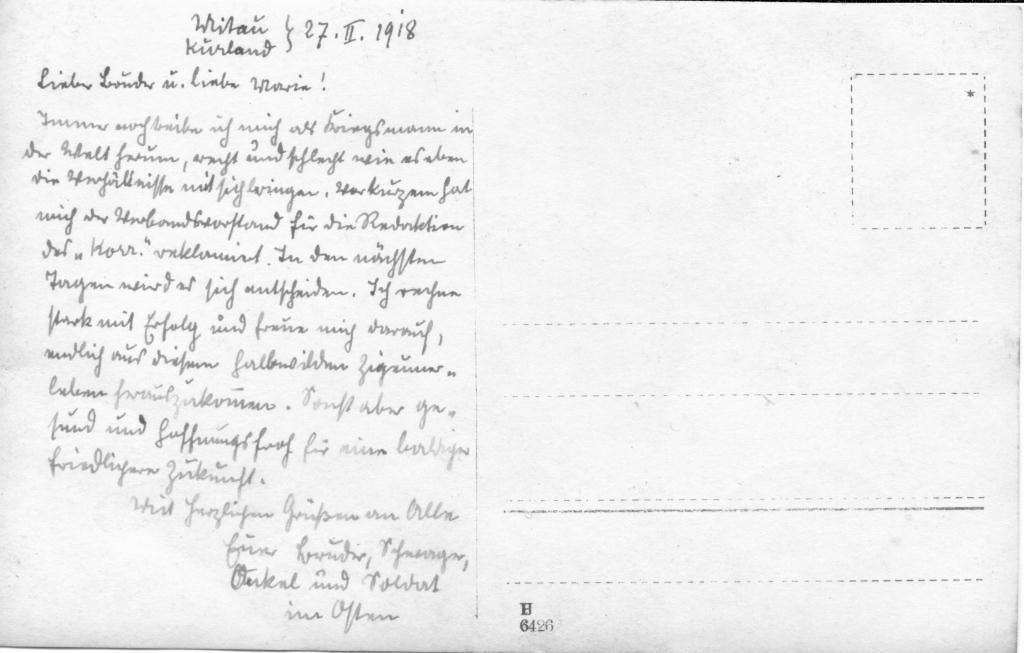 Mitau } 27. II. 1918
Kurland
Lieber Bruder u. liebe Marie!
Immer noch treibe ich mich als Kriegsmann in
der Welt herum, recht und schlecht wie es eben
die Verhältnisse mit sich bringen. Vor kurzem hat
mich der Verbandsvorstand für die Redaktion
des „Korr.“ reklamirt. In den nächsten
Tagen wird es sich entscheiden. Ich rechne
stark mit Erfolg und freue mich darauf,
endlich aus diesem halbwilden Zigeuner-
leben herauszukommen. Sonst aber ge-
sund und hoffnungsfroh für eine baldige
friedlichere Zukunft.
Mit herzlichen Grüßen an Alle
Euer Bruder, Schwager,
Onkel und Soldat
im Osten
H
6426